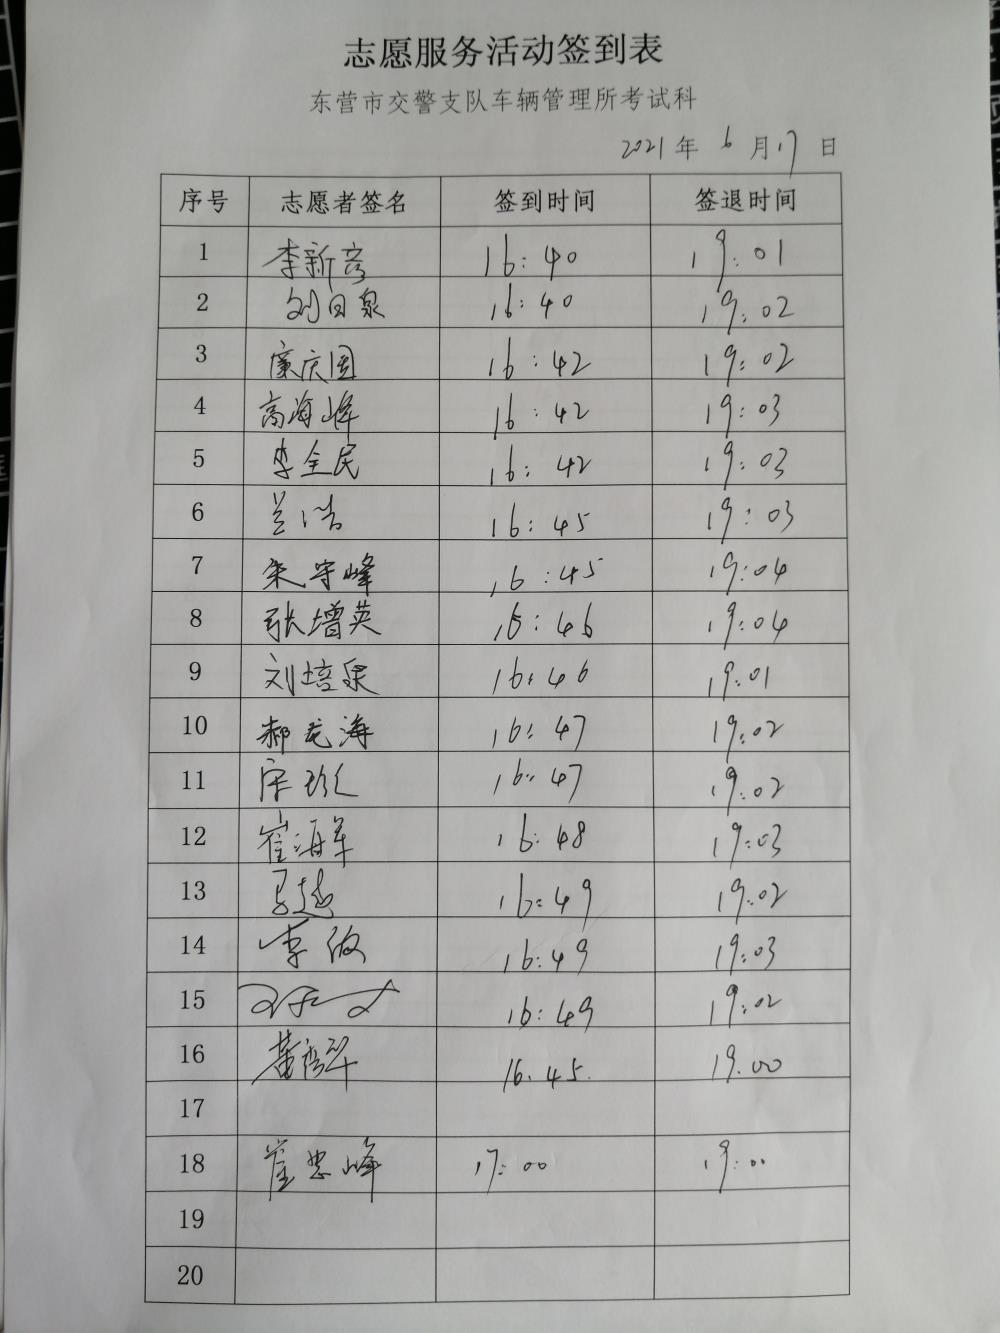 志愿服务活动签到表
东营市交警支队车辆管理所考试科
2021年 6 月 17 日
序号 志愿者签名 签到时间 签退时间
1 李新彦 16:40 19:01
2 刘日泉 16:40 19:02
3 廉庆国 16:42 19:02
4 高海峰 16:42 19:03
5 李全民 16:42 19:03
6 兰浩 16:45 19:03
7 朱守峰 16:45 19:04
8 张增英 16:46 19:04
9 刘培泉 16:46 19:01
10 郝龙海 16:47 19:02
11 宋珍仁 16:47 19:02
12 崔海军 16:48 19:03
13 马越 16:49 19:02
14 李 16:49 19:03
15 16:49 19:02
16 黄 16.45. 19.00
17
18 崔忠峰 17:00 19:00
19
20